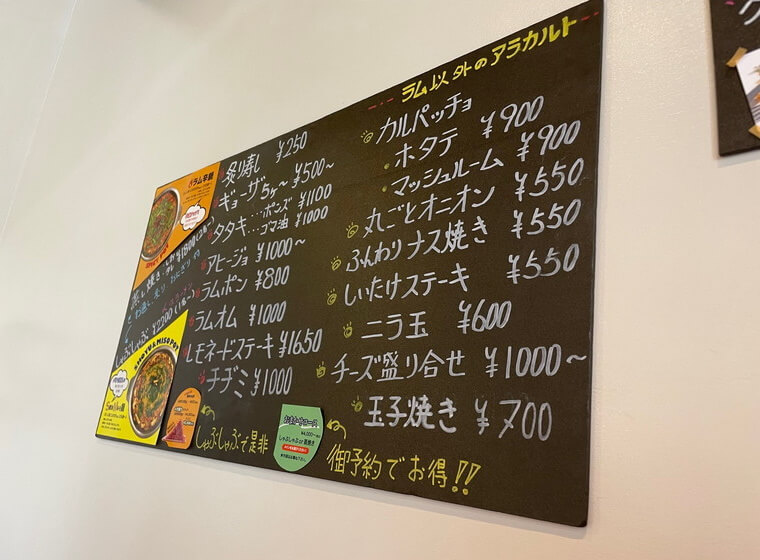 ラム以外のアラカルト
カルパッチョ
ホタテ ¥900
マッシュルーム ¥900
丸ごとオニオン ¥550
ふんわりナス焼き ¥550
しいたけステーキ ¥550
ニラ玉 ¥600
チーズ盛り合せ ¥1000~
玉子焼き ¥700
御予約でお得!!
炙り寿し ¥250
ギョーザ5ケ~ ¥500~
タタキ…ポンズ ¥1100
…ゴマ油 ¥1000
アヒージョ ¥1000~
ラムポン ¥800
ラムオム ¥1000
レモネードステーキ ¥1650
チヂミ ¥1000
しゃぶしゃぶで是非
しゃぶしゃぶ ¥2200
おまかせコース
ラム辛鍋
SHOYU & MISO POT